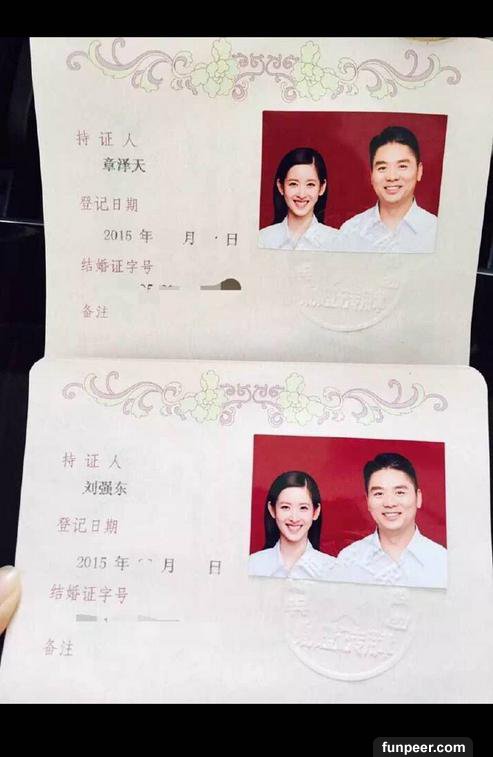 持证人
章泽天
登记日期
2015 年 月 日
结婚证字号
备注
持证人
刘强东
登记日期
2015 年 月 日
结婚证字号
备注
funpeer.com